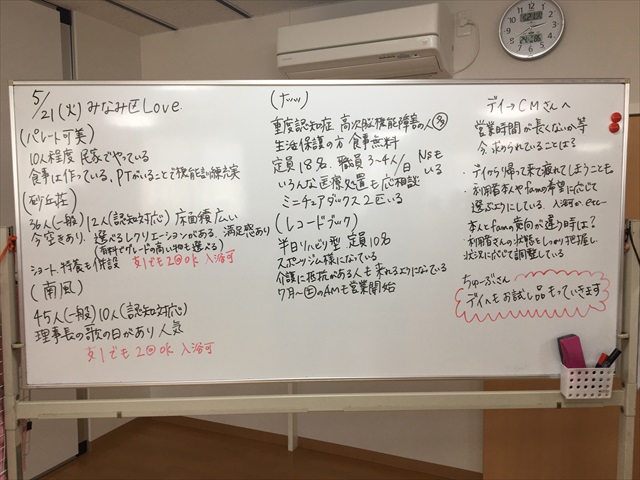 5/21(火)みなみ区Love
(パレート可美)
10人程度 民家でやっている
食事は作っている、PTがいることで機能訓練充実
(砂丘荘)
36人(一般) 12人(認知対応) 床面積広い
今空きあり、選べるレクリエーションがある、満足感あり
(有料でグレードの高い物も選べる)
ショート、特養も併設 支1でも2回ok 入浴可
(南風)
45人(一般) 10人(認知対応)
理事長の歌の日があり 人気
支1でも 2回ok 入浴可
重度認知症 高次脳機能障害の人
生活保護の方 食事無料
定員18名、職員3~4人/日 NSも
いる
いろんな医療処置も応相談
ミニチュアダックス2匹いる
(レコードブック)
半日リハビリ型 定員10名
スポーツジム様になっている
介護に抵抗がある人も来れるようになっている
7月~土のAMも営業開始
デイ→CMさんへ
営業時間が長くないか等
今、求められていることは?
・デイから帰って来て疲れてしまうことも
・利用者本人やfamの希望に応じて
選ぶようにしている、入浴か etc…
本人とfamの意向が違う時は?
利用者さんの状態をしっかり把握し、
状況に応じて調整している
ちゅーぶさん
デイへもお試し品もっていきます